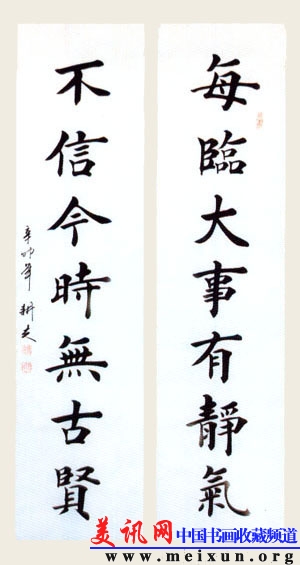 每臨大事有靜氣
不信今時無古賢
辛卯年 耕夫
美讯网
中国书画收藏频道
www.meixun.org